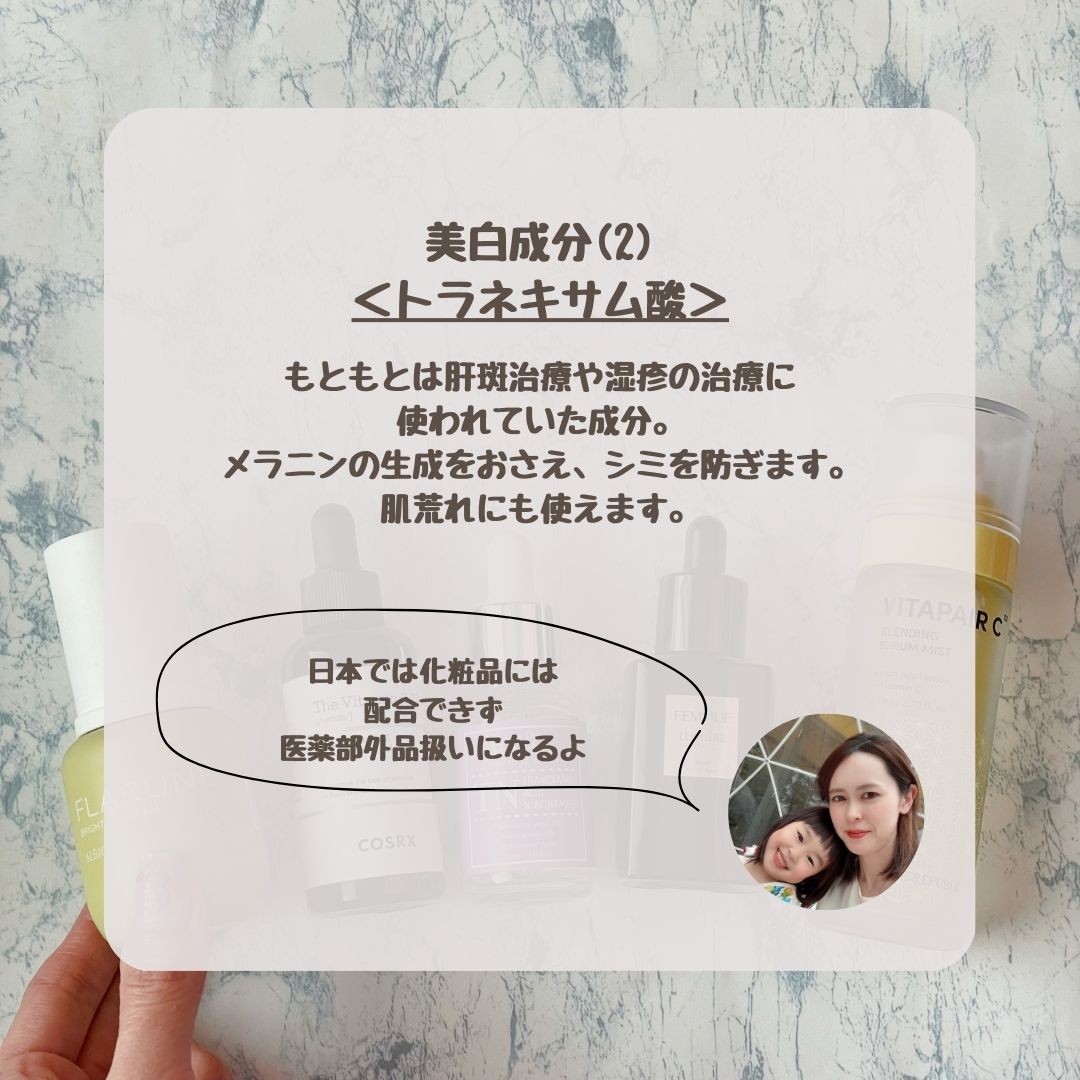 美白成分(2)
＜トラネキサム酸＞
もともとは肝斑治療や湿疹の治療に
使われていた成分。
メラニンの生成をおさえ、シミを防ぎます。
肌荒れにも使えます。
日本では化粧品には
配合できず
医薬部外品扱いになるよ
VITAPAIR C
BLENDING
SERUM MIST
The Vit
COSRX
TRANEXAMIC
ACID
NIACINAMIDE
FEMMUE
FLA
BRIGHT
ALBIO
REPUBLIC